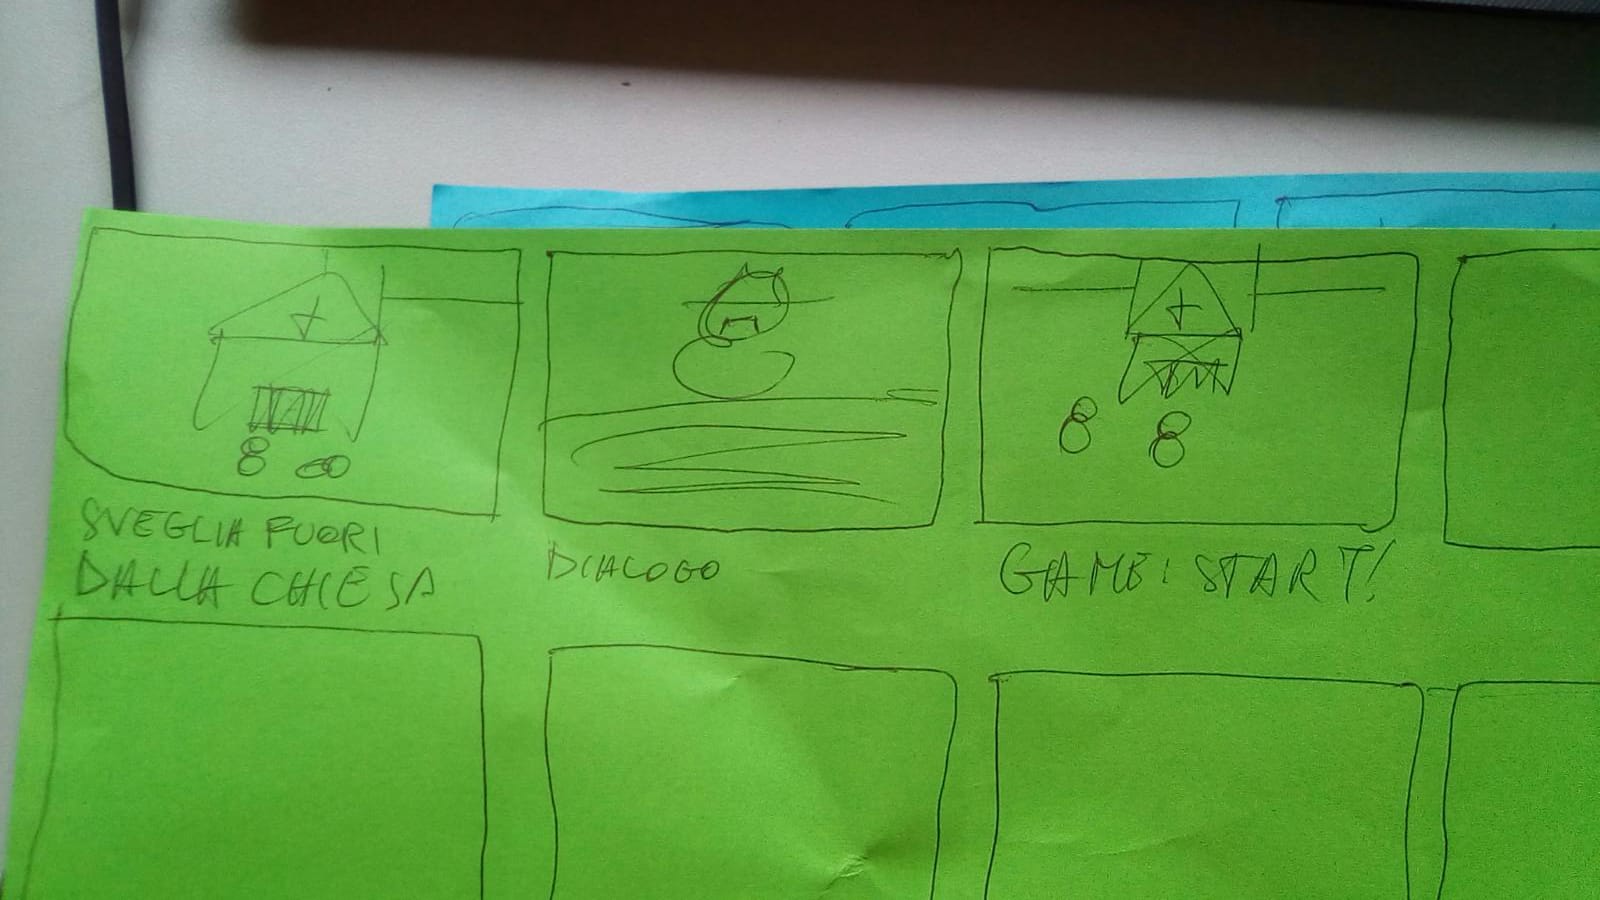 SVEGLIA FUORI
DALLA CHIESA
DIALOGO
GAME: START!